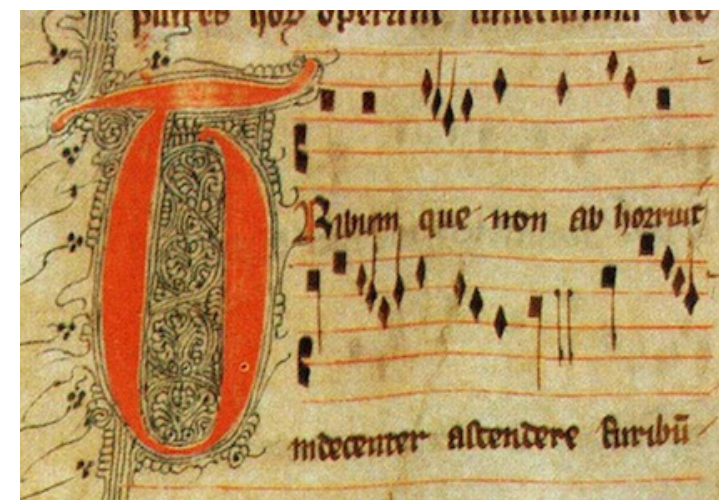 TRibum que non ab horruit
indecenter ascendere furibū